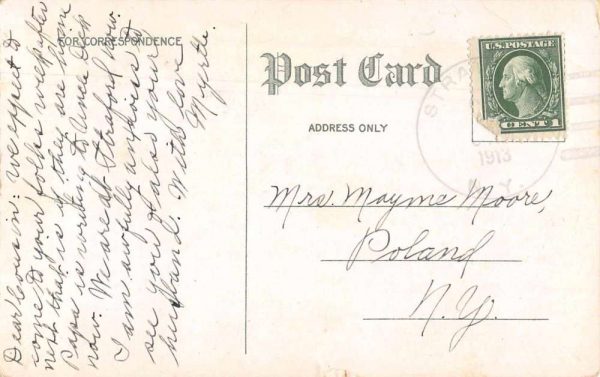 FOR CORRESPONDENCE
Dear Cousin: we expect to
come to your folks week after
next that is if they are home
Papa is writing to Dick
now. We are at Stratford now.
I am awfully anxious to
see you & also your
husband. With love
Myrtle.
Post Card
ADDRESS ONLY
U.S. POSTAGE
CENT 1
STRAT
1913
N.Y.
Mrs. Mayme Moore,
Poland
N.Y.